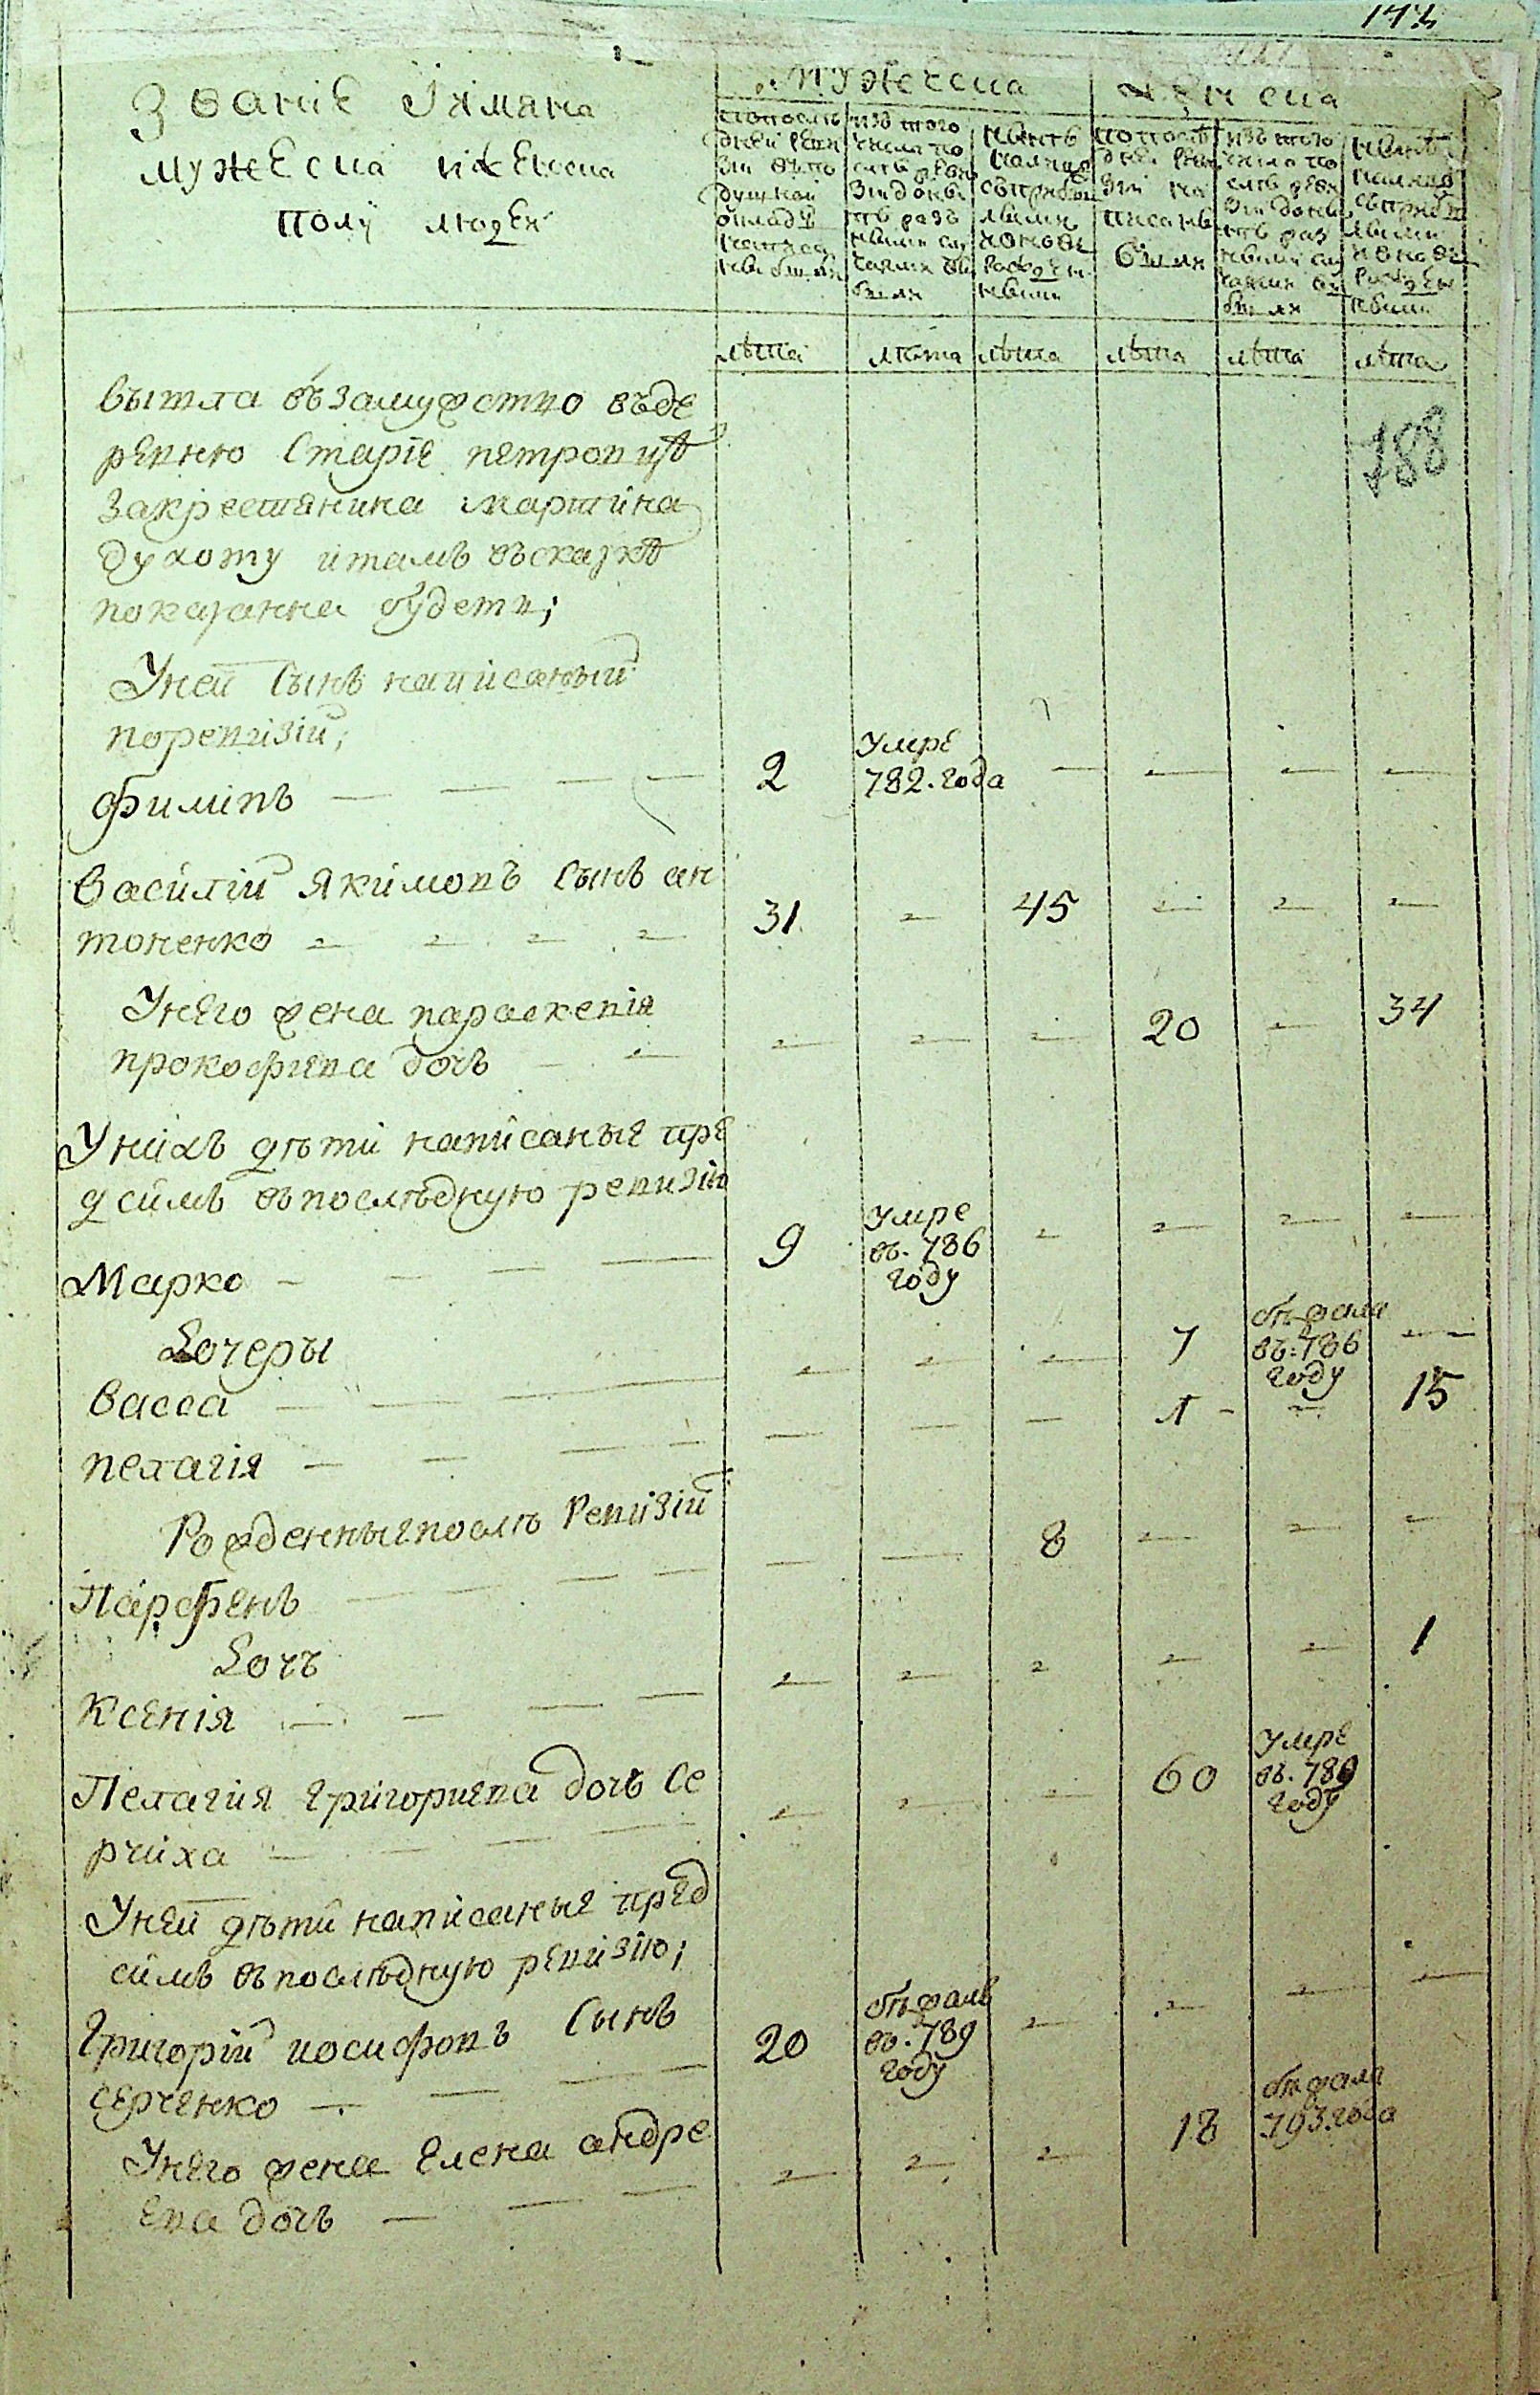 званіе Iимяна
мужеска иженска
полу людей
Мужеска
Женска
попосле
дней реви
зіи въпо
душной
окладъ
написа
ны были
изъ того
числа по
слѣ реви
зіи донын
нѣ разъ
ными слу
чаями вы
были
нынѣ
налицо
съприбы
лыми
иновь
рожден
ными
попослѣ
дней реви
зіи на
писаны
были
изъ того
числа по
слѣ реви
зіи донын
нѣ раз
ными слу
чаями вы
были
нынѣ
налицо
съприбы
лыми
иновь
рожден
ными
лѣта лѣта лѣта лѣта лѣта лѣта
вышла въ замужство въде
ревню Старіе петровцѣ
закрестянина мартина
духоту итамъ въсказкѣ
показанна будетъ;
188
Уней Сынъ написаный
поревизіи;
Филипъ 2 умре 782. года
Василій Якимовъ Сынъ ан
тоненко 31 45
Унего жена параскевія
прокофиева дочь 20 34
Унихъ дѣти написаные пре
д симъ въпослѣдную ревизію
Марко 9 умре въ. 786 году
Дочеры
Васса 7 бѣжала въ: 786 году
пелагія 1 15
Рожденныепослѣ Ревизіи
Парфенъ 8
Дочъ
Ксенія 1
Пелагия григориева дочь Се
рчиха 60 умре въ. 789 году
Уней дѣти написаные пред
симъ въпослѣдную ревизію;
Григорій иосифовъ Сынъ
серченко 20 бѣжалъ въ. 789 году
Унего жена Елена андре
ева дочь 18 бѣжала 793. года